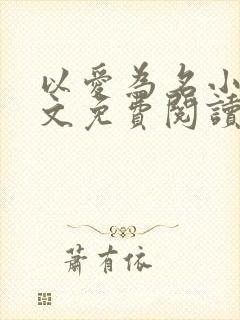 以愛為名小
文免費閱讀
蕭有依